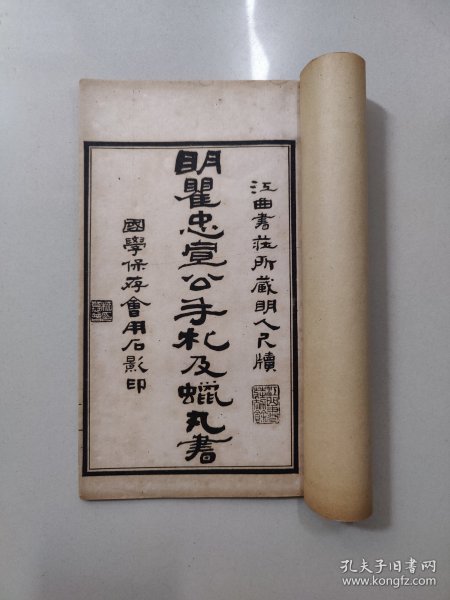 江曲書莊所藏明人尺牘
明瞿忠宣公手札及蠟丸書
國學保存會用石影印
孔夫子旧书网
www.kongfz.com